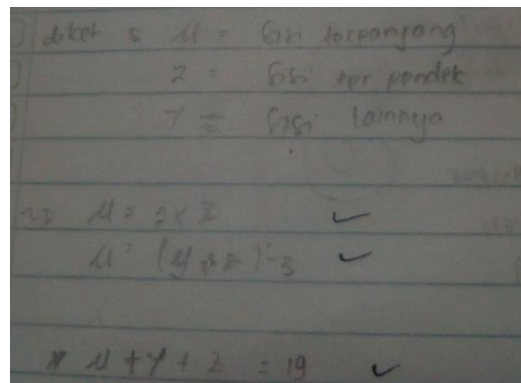 diket : x = sisi terpanjang
z = sisi ter pendek
y = sisi lainnya
=> x = 2 x z
x = (y + z) - 3
x + y + z = 19